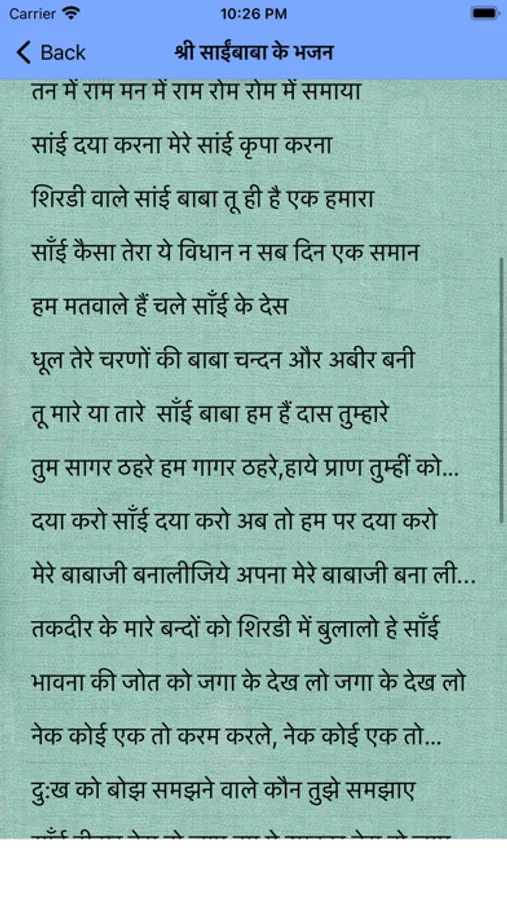 Carrier 10:26 PM
Back श्री साईंबाबा के भजन
तन में राम मन में राम रोम रोम में समाया
सांई दया करना मेरे सांई कृपा करना
शिरडी वाले सांई बाबा तू ही है एक हमारा
साँई कैसा तेरा ये विधान न सब दिन एक समान
हम मतवाले हैं चले साँई के देस
धूल तेरे चरणों की बाबा चन्दन और अबीर बनी
तू मारे या तारे साँई बाबा हम हैं दास तुम्हारे
तुम सागर ठहरे हम गागर ठहरे,हाये प्राण तुम्हीं को...
दया करो साँई दया करो अब तो हम पर दया करो
मेरे बाबाजी बनालीजिये अपना मेरे बाबाजी बना ली...
तकदीर के मारे बन्दों को शिरडी में बुलालो हे साँई
भावना की जोत को जगा के देख लो जगा के देख लो
नेक कोई एक तो करम करले, नेक कोई एक तो...
दु:ख को बोझ समझने वाले कौन तुझे समझाए